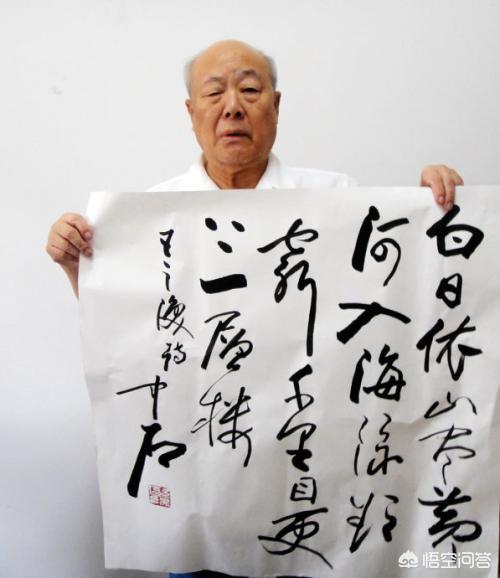 白日依山尽黄
河入海流欲
穷千里目更
上一层楼
王之涣诗中石
悟空问答